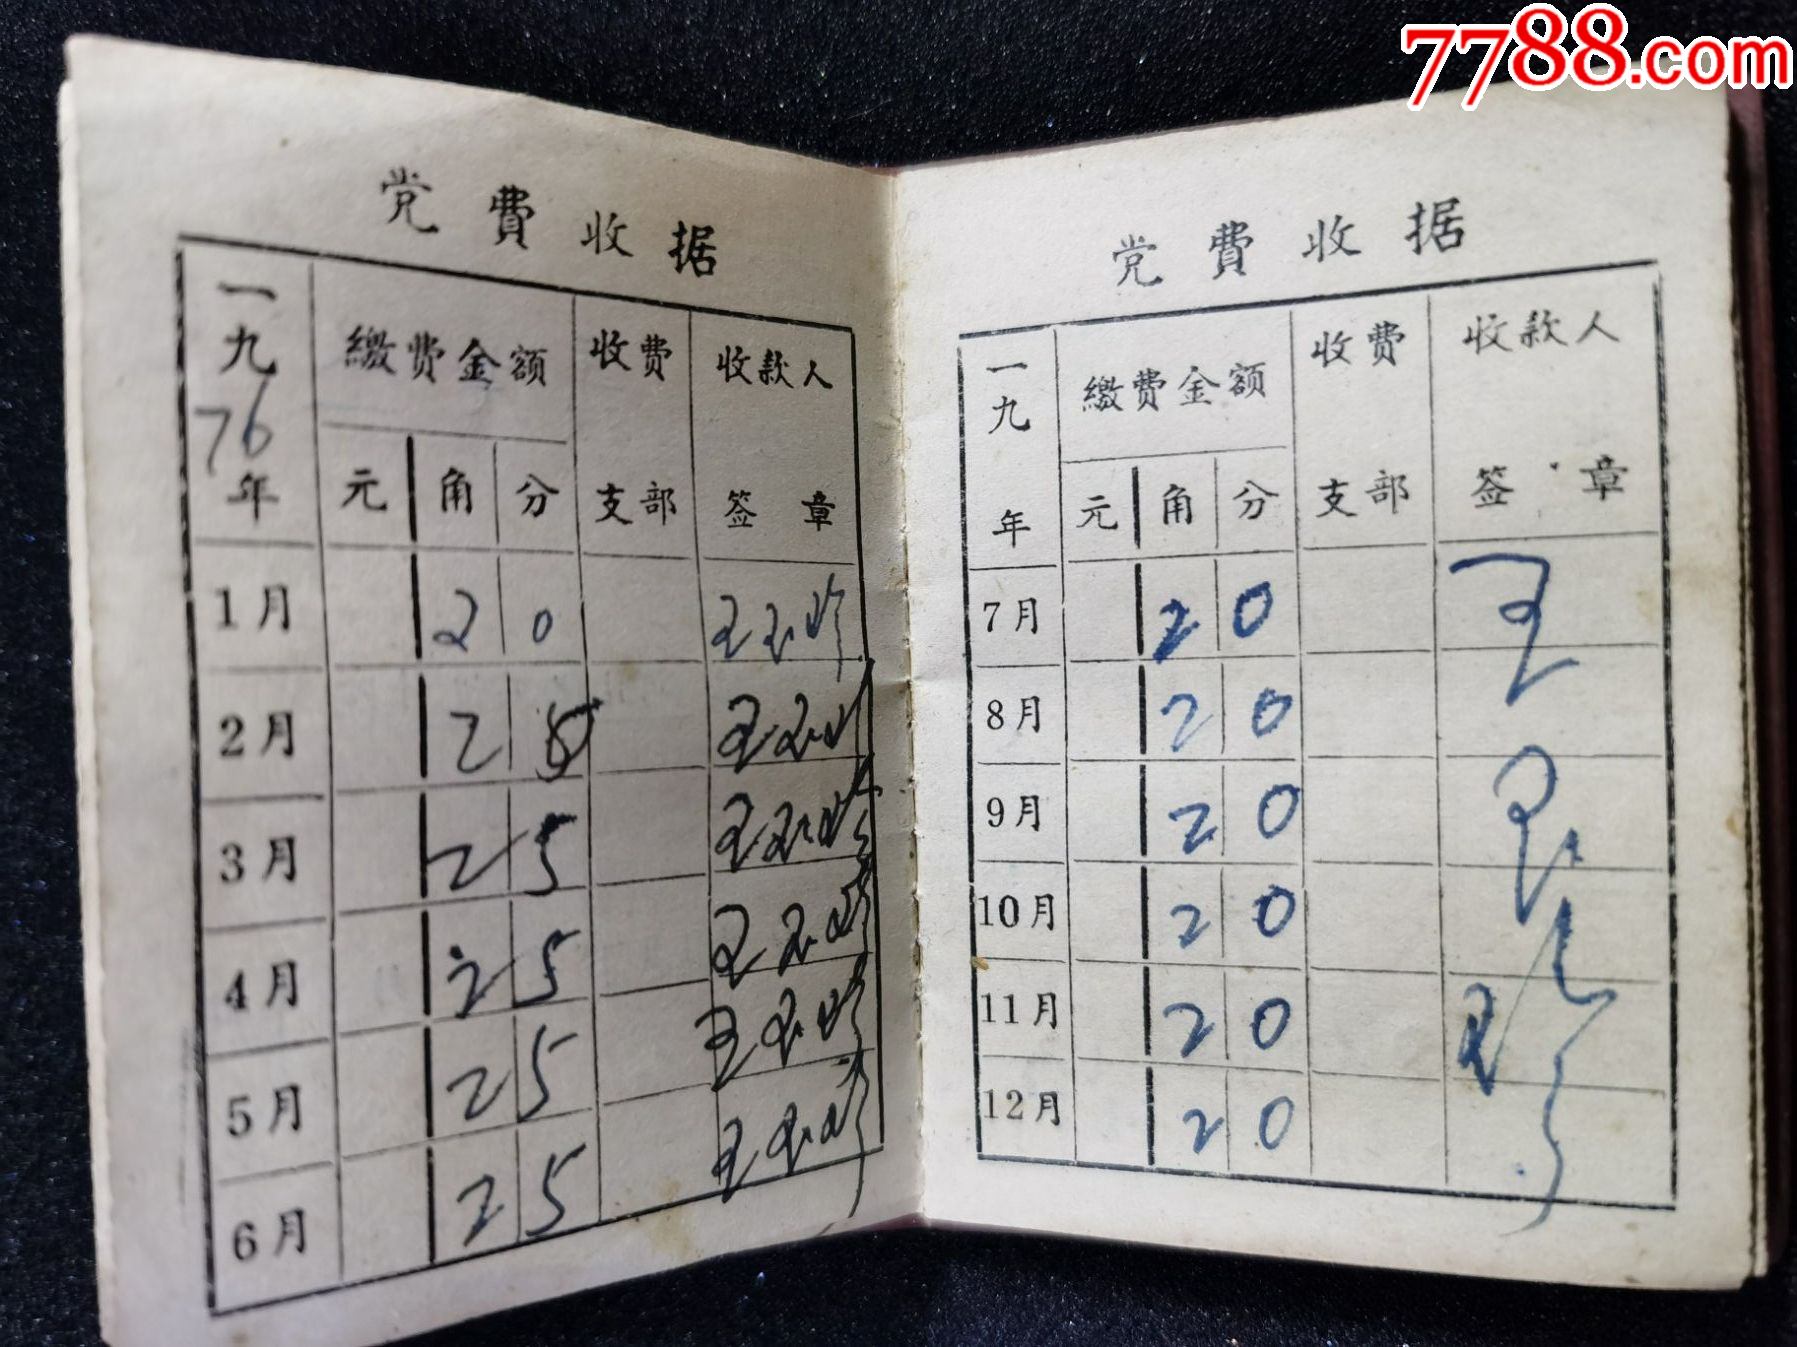 7788.com
党费收据
一九76年 缴费金额 收费支部 收款人签章
元 角 分
1月 2 0
2月 2 5
3月 2 5
4月 2 5
5月 2 5
6月 2 5
党费收据
一九 年 缴费金额 收费支部 收款人签章
元 角 分
7月 2 0
8月 2 0
9月 2 0
10月 2 0
11月 2 0
12月 2 0